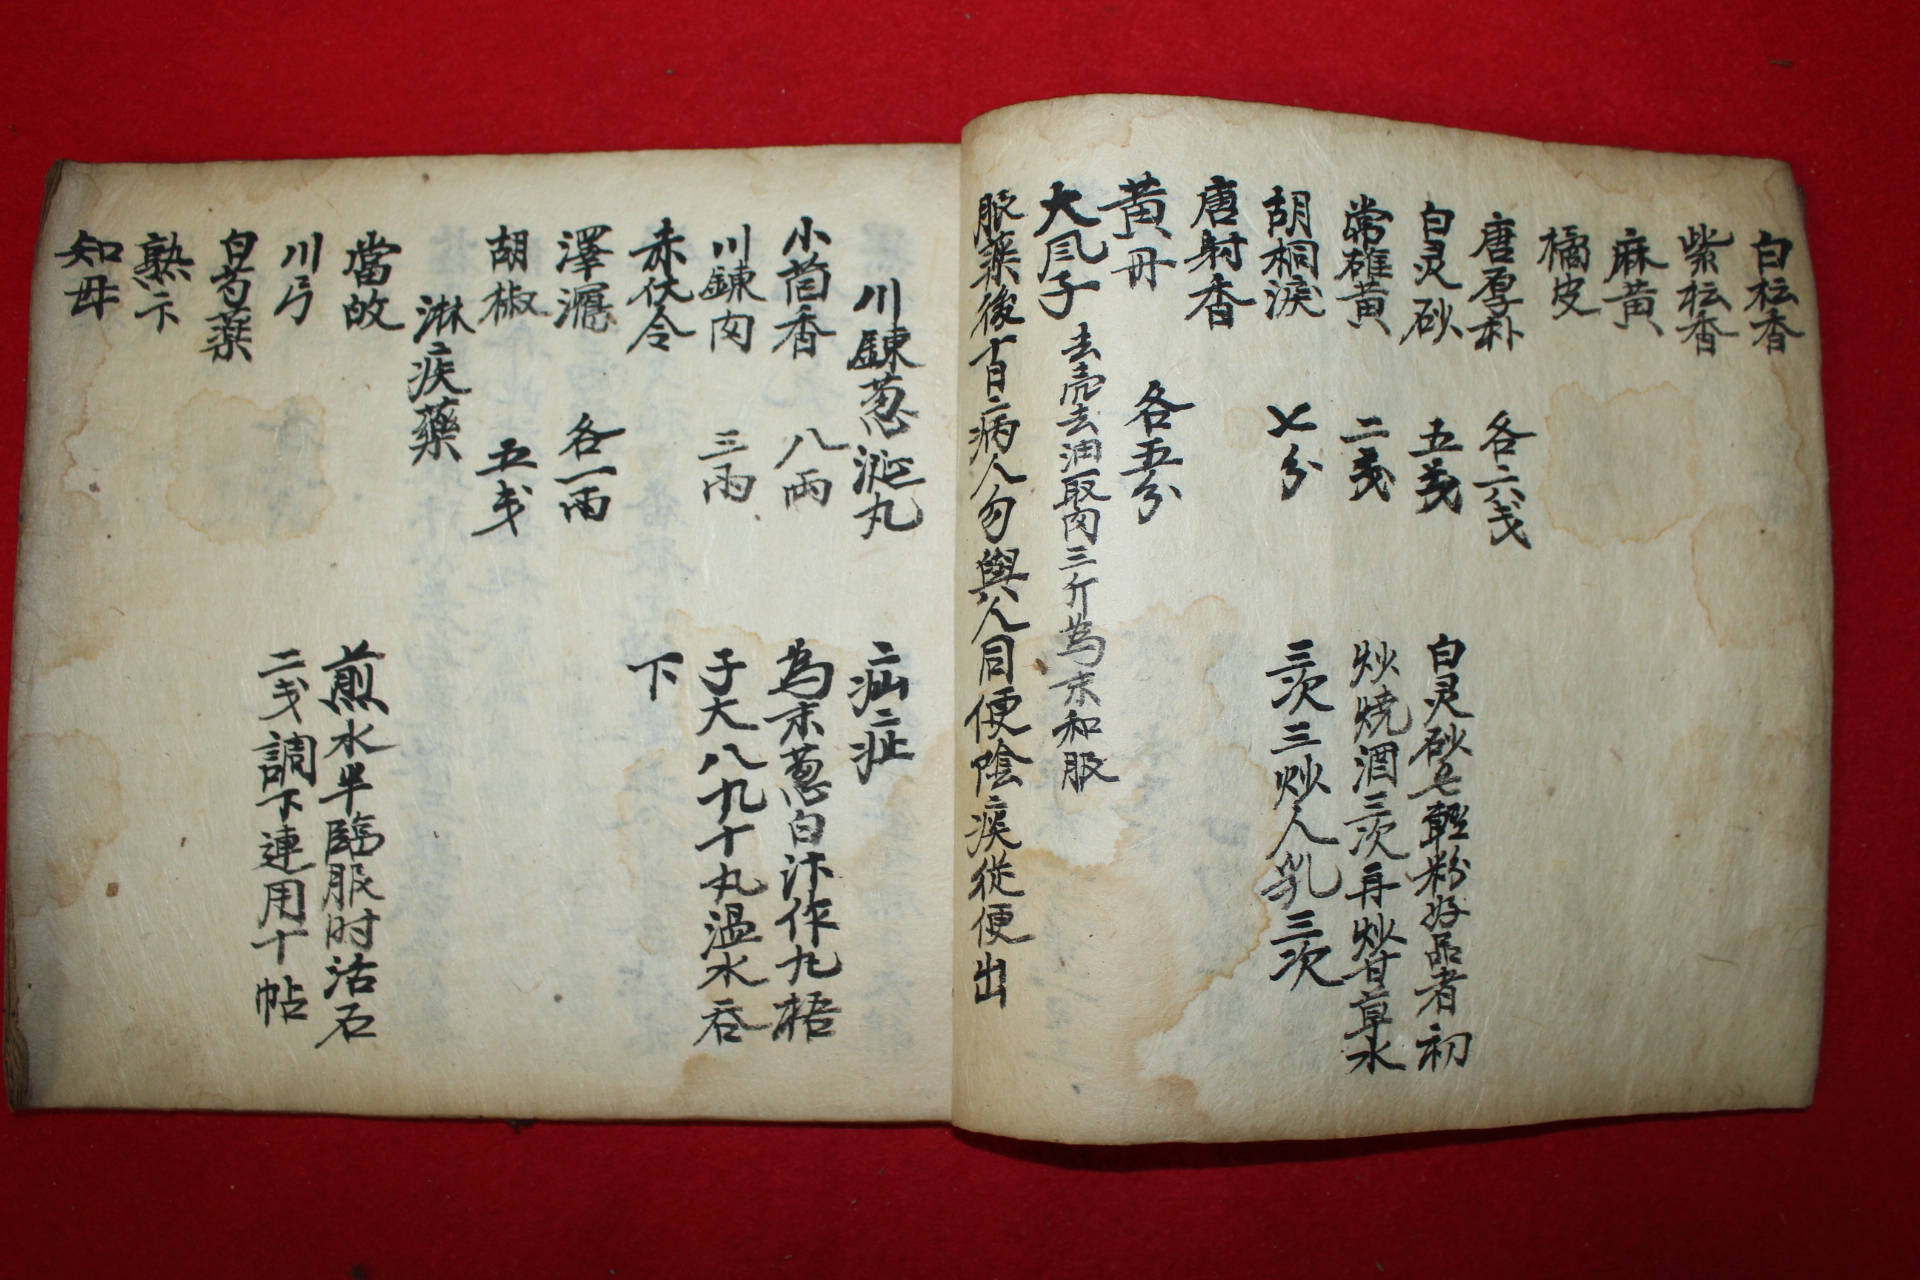 白枟香
紫枟香
麻黃
橘皮
唐厚朴 各六戔
白灵砂 五戔 白灵砂七輕粉好品者初
常雄黃 二戔 炒燒酒三次再炒甘草水
胡桐淚 七分 三次三炒人乳三次
唐射香
黃丹 各五分
大風子 去売去油取肉三斤為末和服
服藥後百病人勿與人同便陰疾從便出
川鍊葱涎丸 疝症
小茴香 八兩 為末葱白汁作丸梧
川鍊肉 三兩 子大八九十丸溫水吞
赤伏令 下
澤瀉 各一兩
胡椒 五戔
淋疾藥
當故 煎水半臨服时活石
川弓 二戔調下連用十帖
白芍藥
熟卞
知母